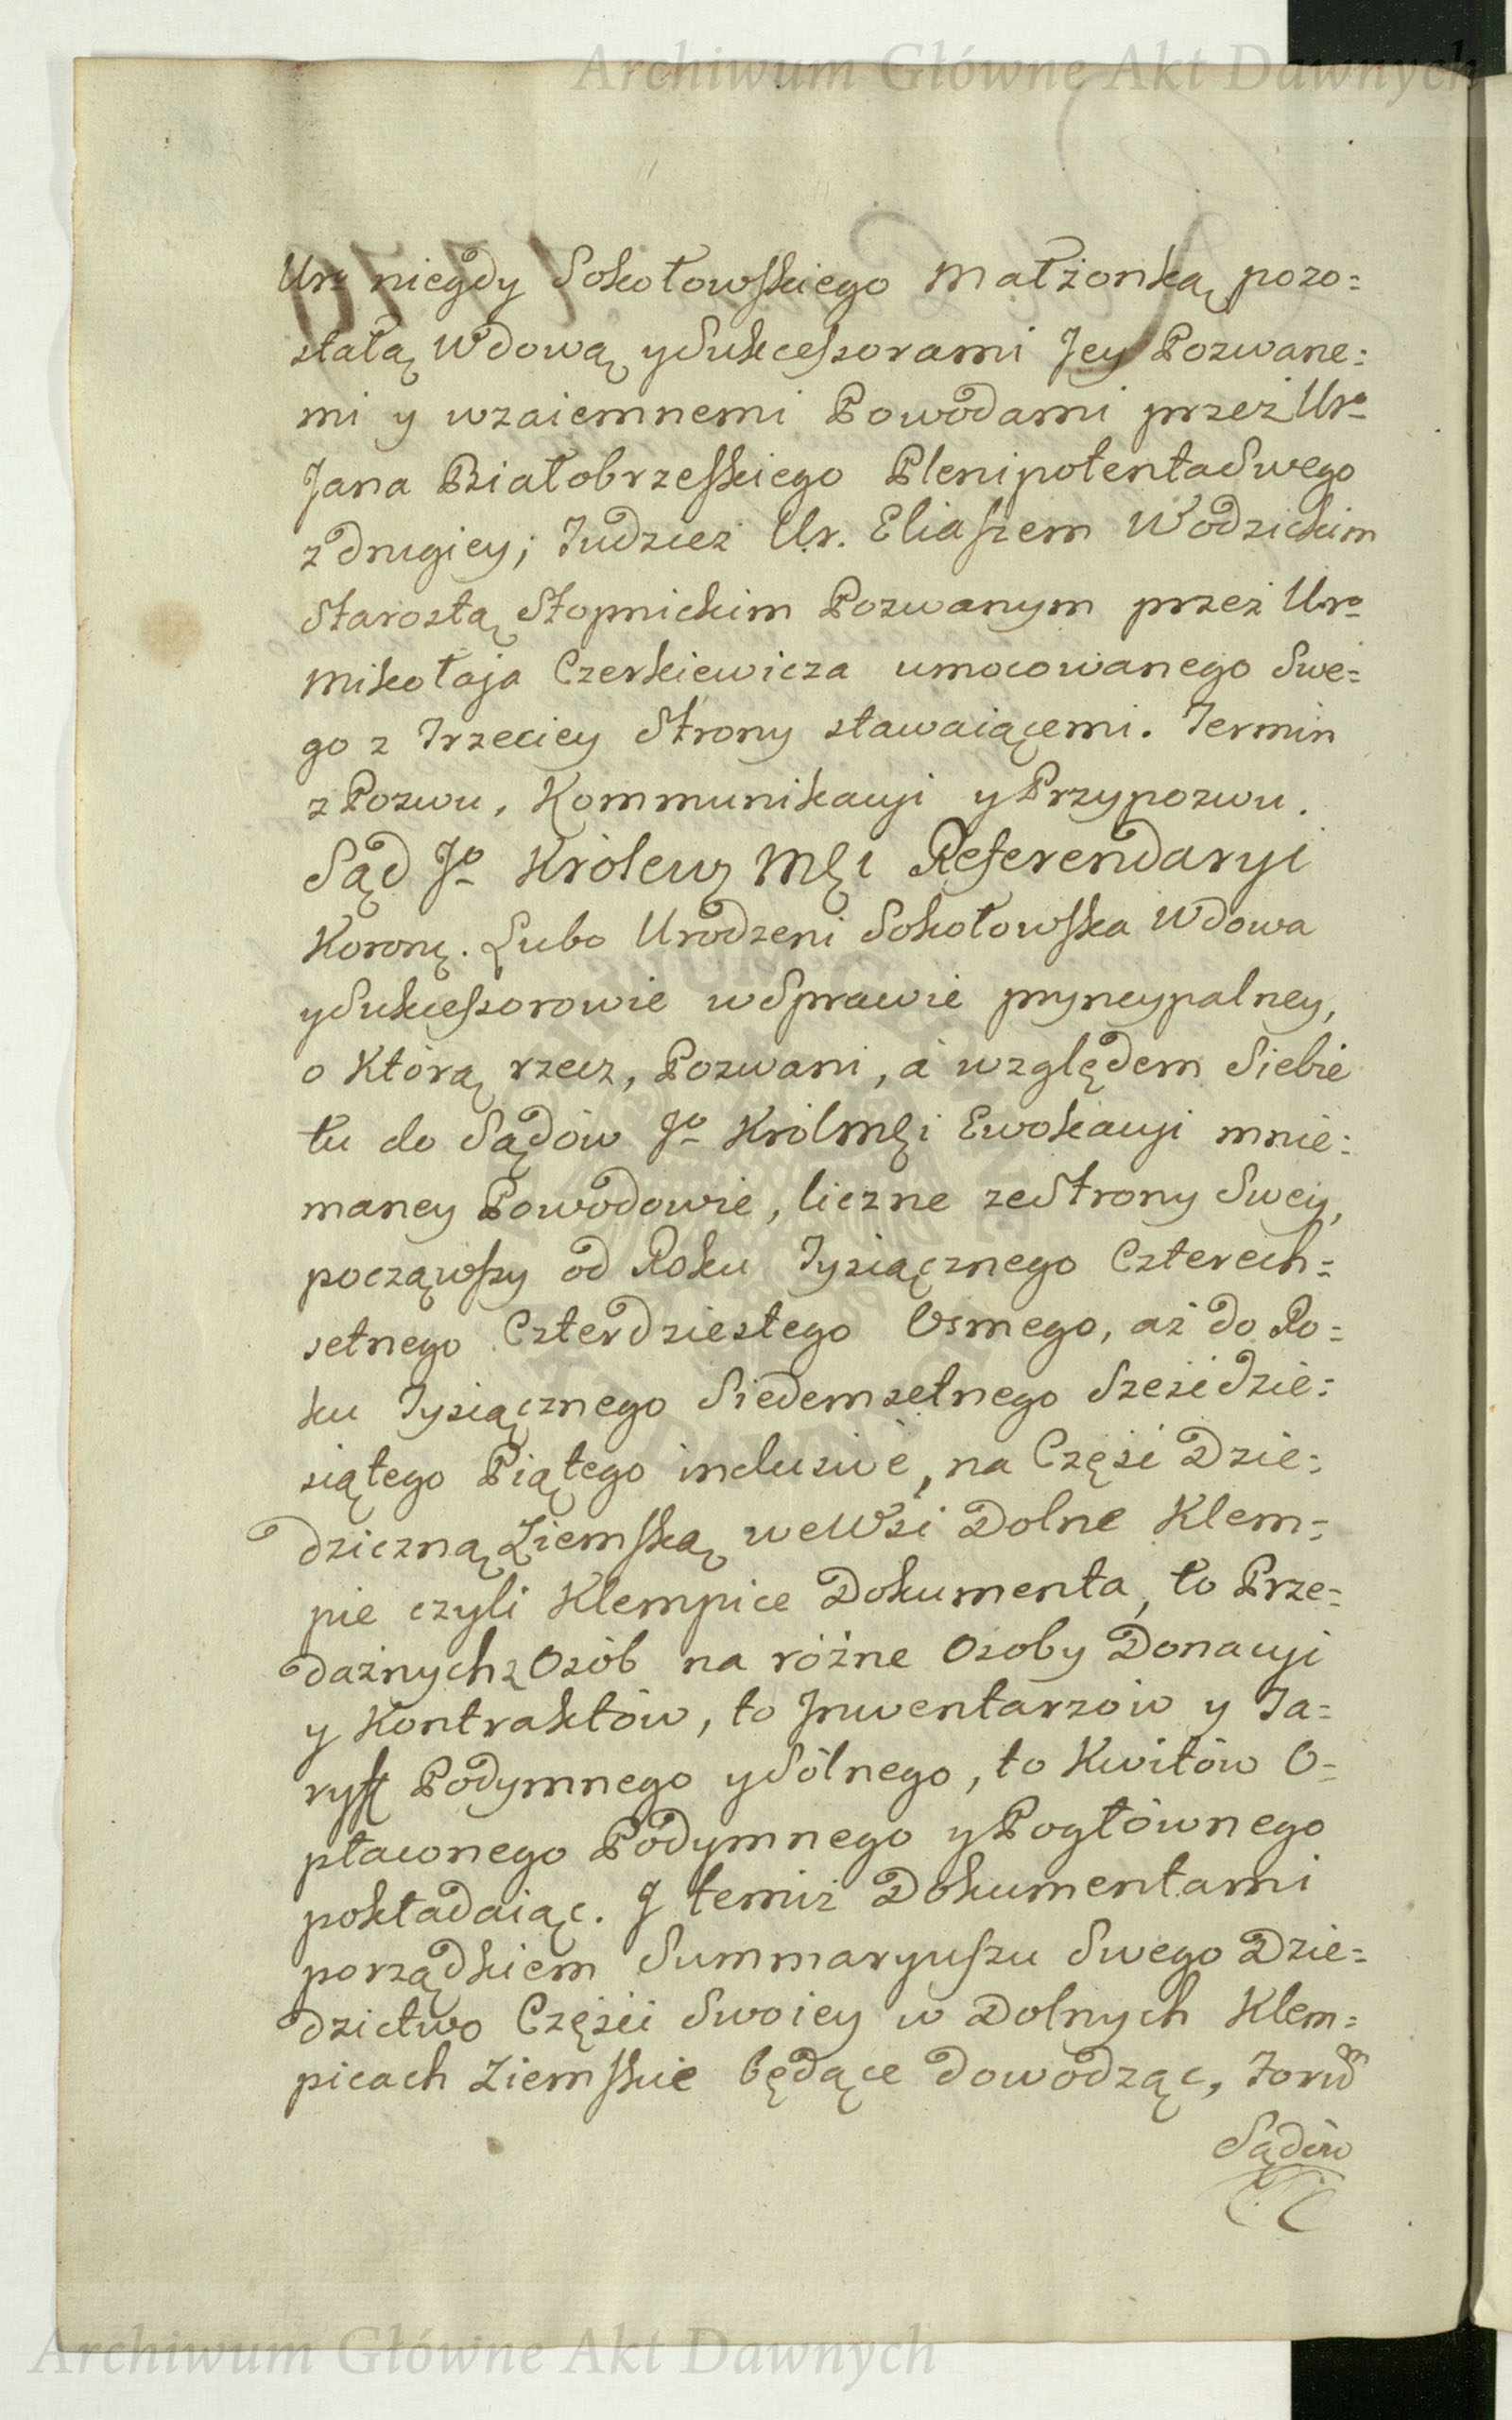 Archiwum Główne Akt Dawnych
Uro niegdy Sokołowskiego Małżonką pozo=
stałą Wdową y Sukcessorami Jey Pozwane=
mi y wzaiemnemi Powodami przez Uro
Jana Białobrzeskiego Plenipotenta Swego
z drugiey; Tudzież Ur. Eliaszem Wodzickim
Starostą Stopnickim Pozwanym przez Uro
Mikołaja Czerkiewicza umocowanego Swe=
go z Trzeciey Strony stawaiącemi. Termin
z Pozwu, Kommunikacyi y Przypozwu.
Sąd Jo Królewz Mći Referendaryi
Koronę. Lubo Urodzeni Sokołowska Wdowa
y Sukcessorowie w Sprawie pryncypalney,
o Którą rzecz, Pozwani, á względem Siebie
tu do Sądów Jo Król Mći Ewokacyi mnie=
maney Powodowie, liczne ze Strony Swey,
począwszy od Roku Tysiącznego Czterech=
setnego Czterdziestego Osmego, aż do Ro=
ku Tysiącznego Siedemsetnego Sześćdzie=
siątego Piątego inclusivè, na Część Dzie=
dziczną Ziemską we Wsi Dolne Klem=
pie czyli Klempice Dokumenta, to Prze=
dażnych z Osób na różne Osoby Donacyi
y Kontraktów, to Inwentarzów y Ta=
ryff Podymnego y Sólnego, to Kwitów O=
płaconego Podymnego y Pogłównego
pokładaiąc. I temiż Dokumentami
porządkiem Summaryuszu Swego Dzie=
dzictwo Części Swoiey w Dolnych Klem=
picach Ziemskie będące dowodząc,
Sądów
Archiwum Główne Akt Dawnych